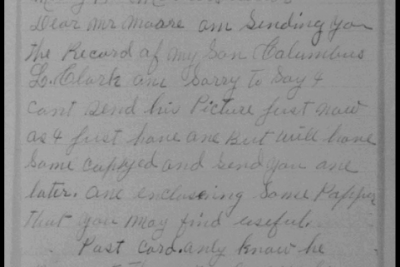 Dear Mr Moare am Sending you
the Record of My Son Columbus
L. Clark am Sorry to Say I
cant send his Picture just now
as I just have one But will have
Some coppyed and Send you one
later. am enclosing Some Papper
that you may find useful.
Post cord. only know he